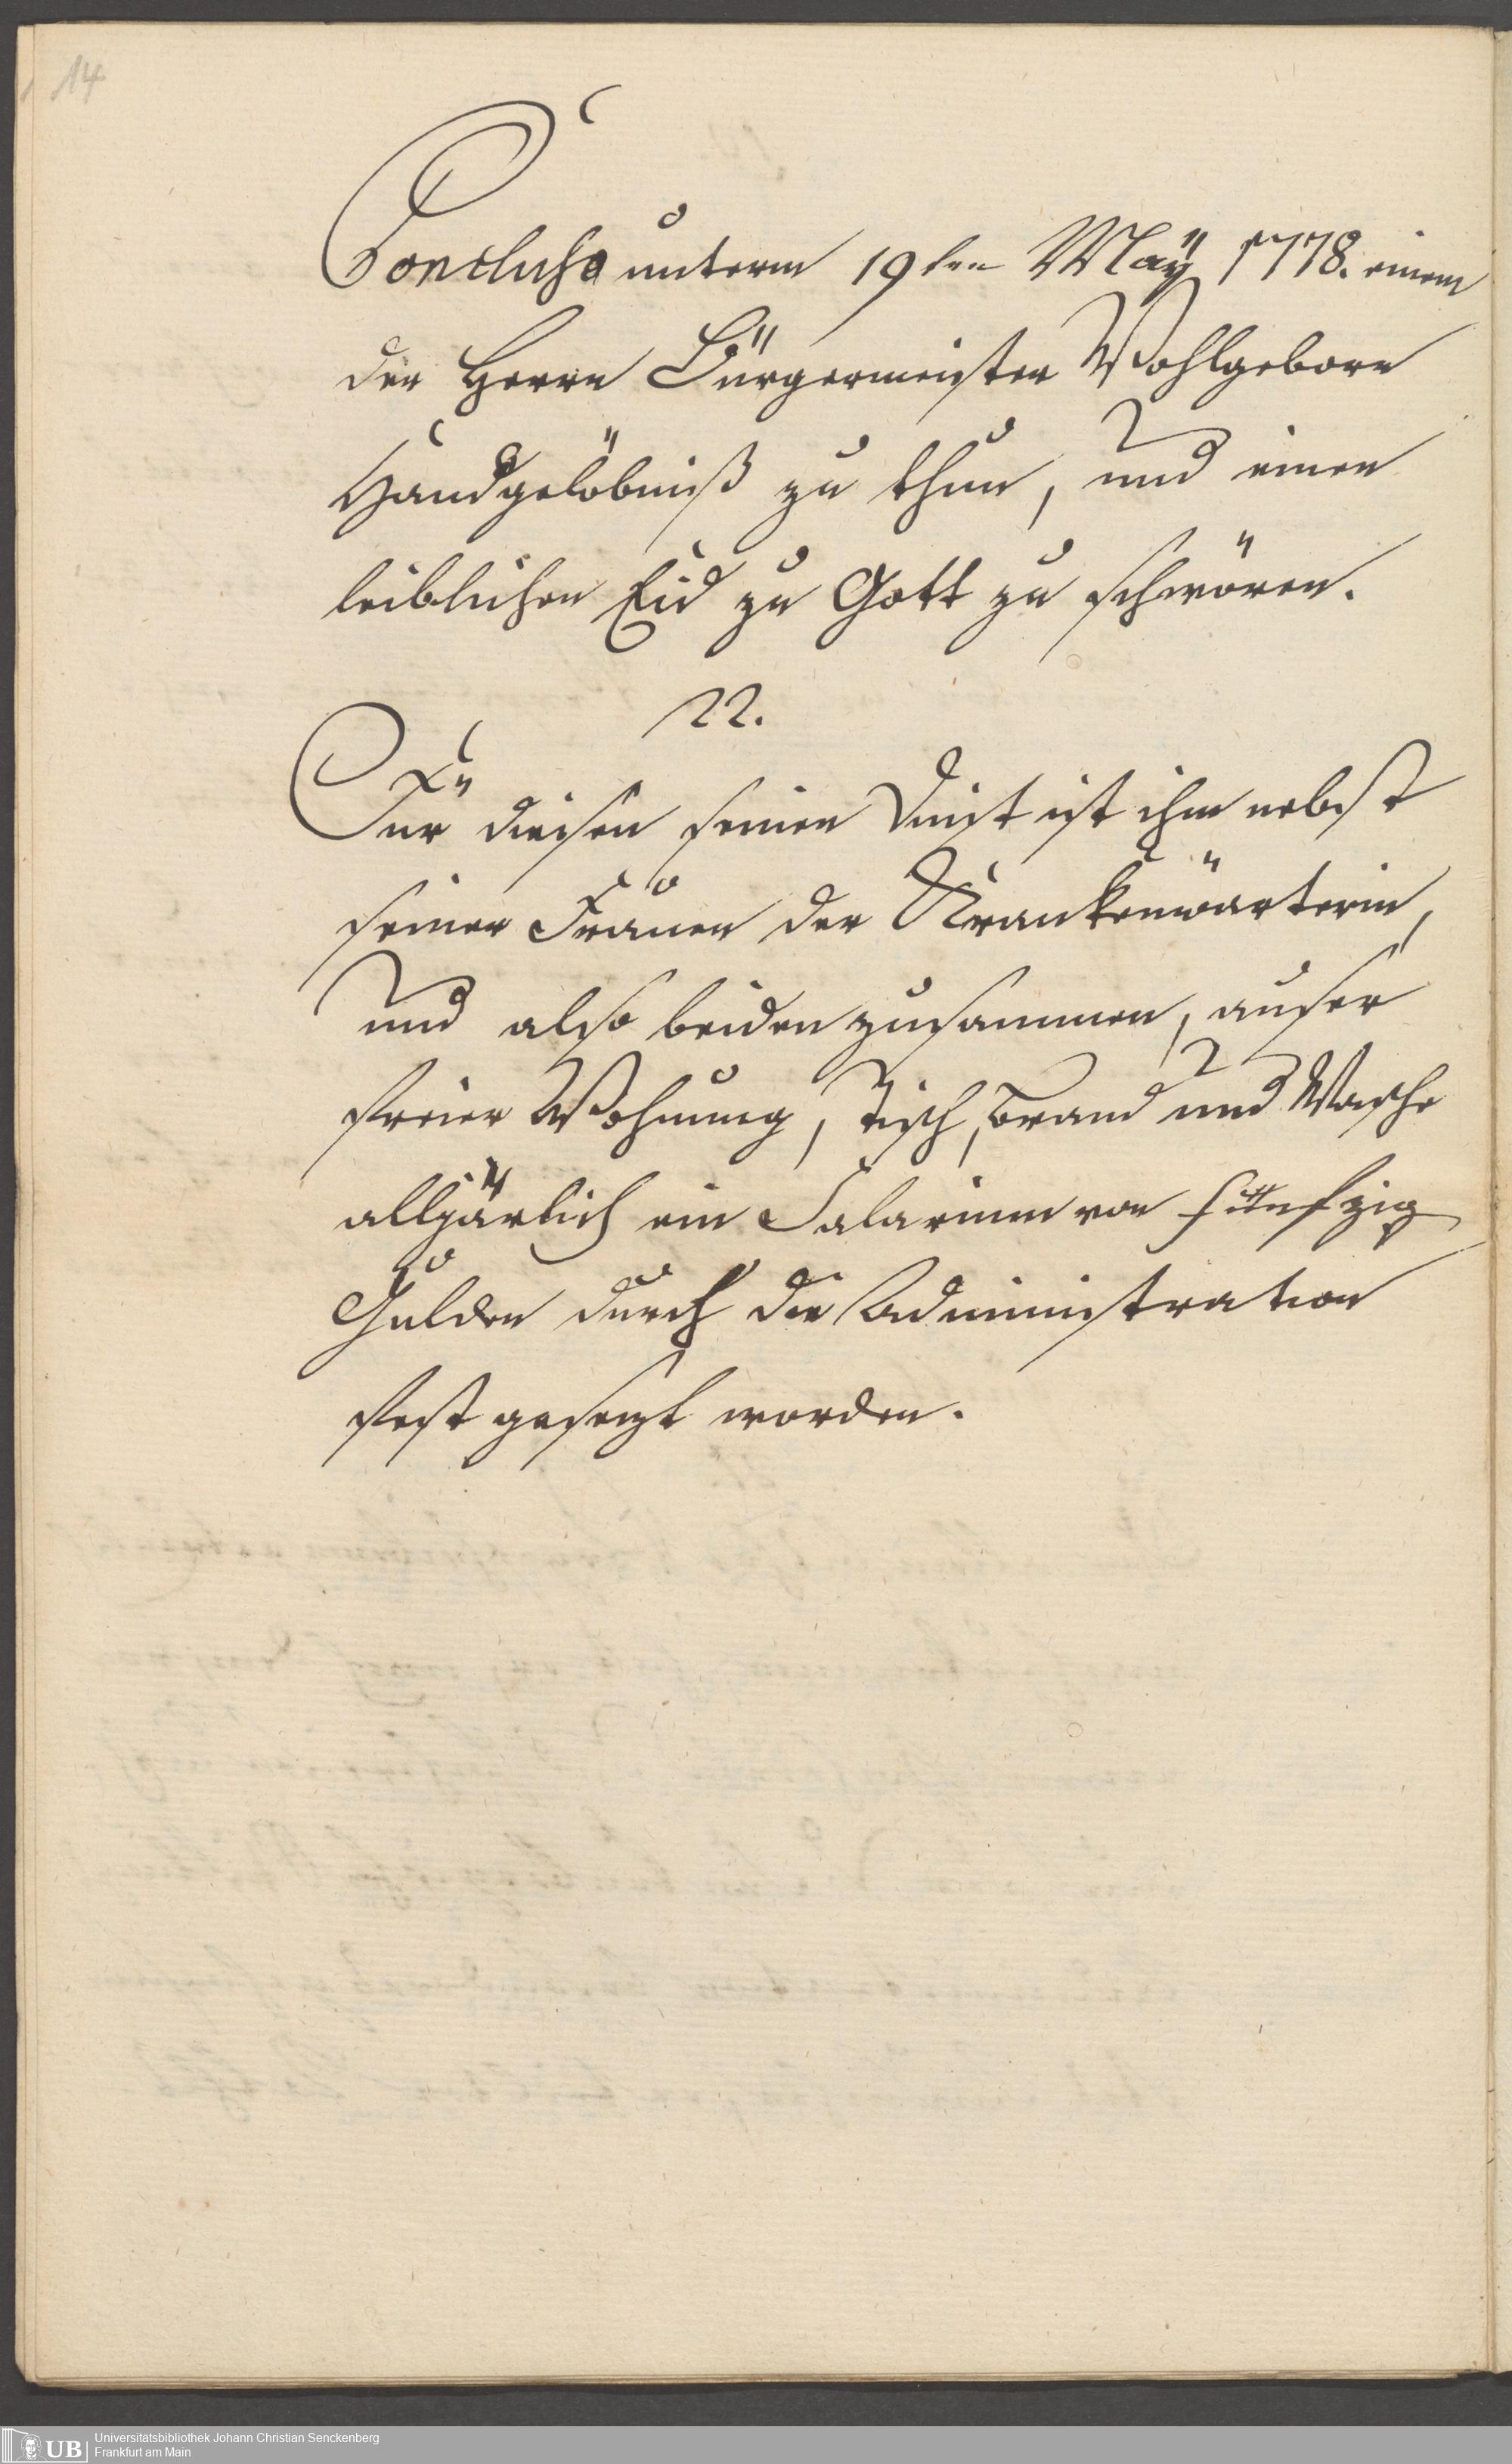 14
Concluso unterm 19ten Maÿ 1778. einem
der Herrn Bürgermeister Wohlgeborn
Handgelöbniß zu thun, und einen
leiblichen Eid zu Gott zu schwören.
22.
Für diesen seinen Dinst ist ihm nebst
seiner Frauen der Krankenwärterin,
und also beiden zusammen, auser
freier Wohnung, Tisch, Brand und Wasche
alljärlich ein Salarium von fünfzig
Gulden durch die Administration
fest gesezt worden.
UB
Universitätsbibliothek Johann Christian Senckenberg
Frankfurt am Main